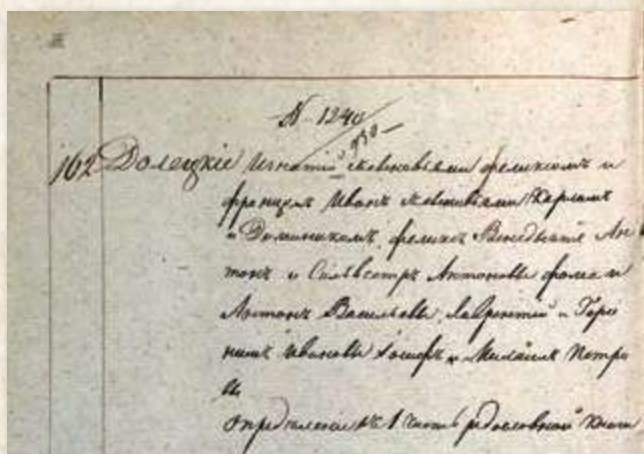 № 1240
930
162 Долецкіе Игнатій с сыновьями феликсомъ и
францъ Иванъ с сыновьями Карломъ
и Доминикомъ, феликсъ Венедыктъ Ан
тонъ и Сильвестръ Антоновы фома и
Антонъ Васильевы, Лаврентій и Геро
нимъ Ивановы Іосифъ и Михаилъ Петро
вы
определеніемъ 1 часть родословной Книги